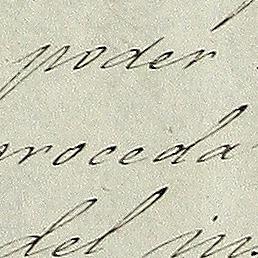 poder
proceda
del